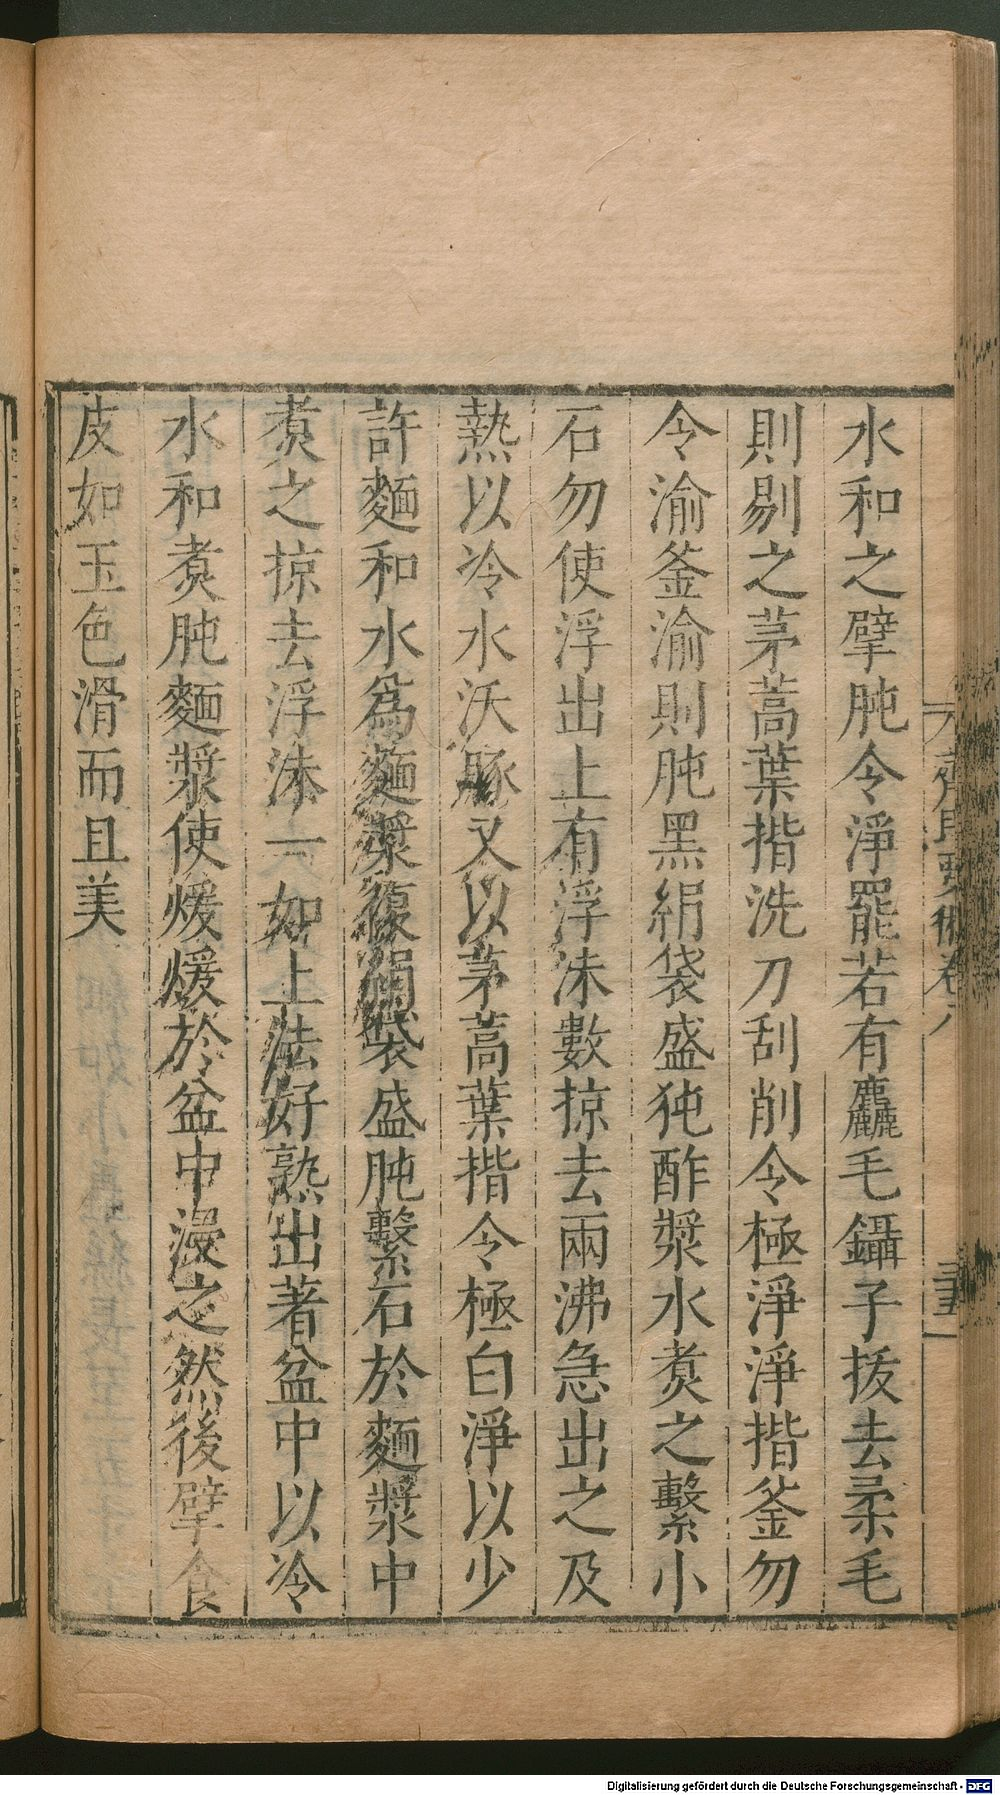 水和之擘肫令淨罷若有麤毛鑷子拔去柔毛
則剔之茅蒿葉揩洗刀刮削令極淨淨揩釜勿
令渝釜渝則肫黑絹袋盛㹠酢漿水煮之繫小
石勿使浮出上有浮沫數掠去兩沸急出之及
熱以冷水沃豚又以茅蒿葉揩令極白淨以少
許麵和水為麵漿復絹袋盛肫繫石於麵漿中
煮之掠去浮沫一如上法好熟出著盆中以冷
水和煮肫麵漿使煖煖於盆中浸之然後擘食
皮如玉色滑而且美
齊民要術卷八
Digitalisierung gefördert durch die Deutsche Forschungsgemeinschaft - DFG